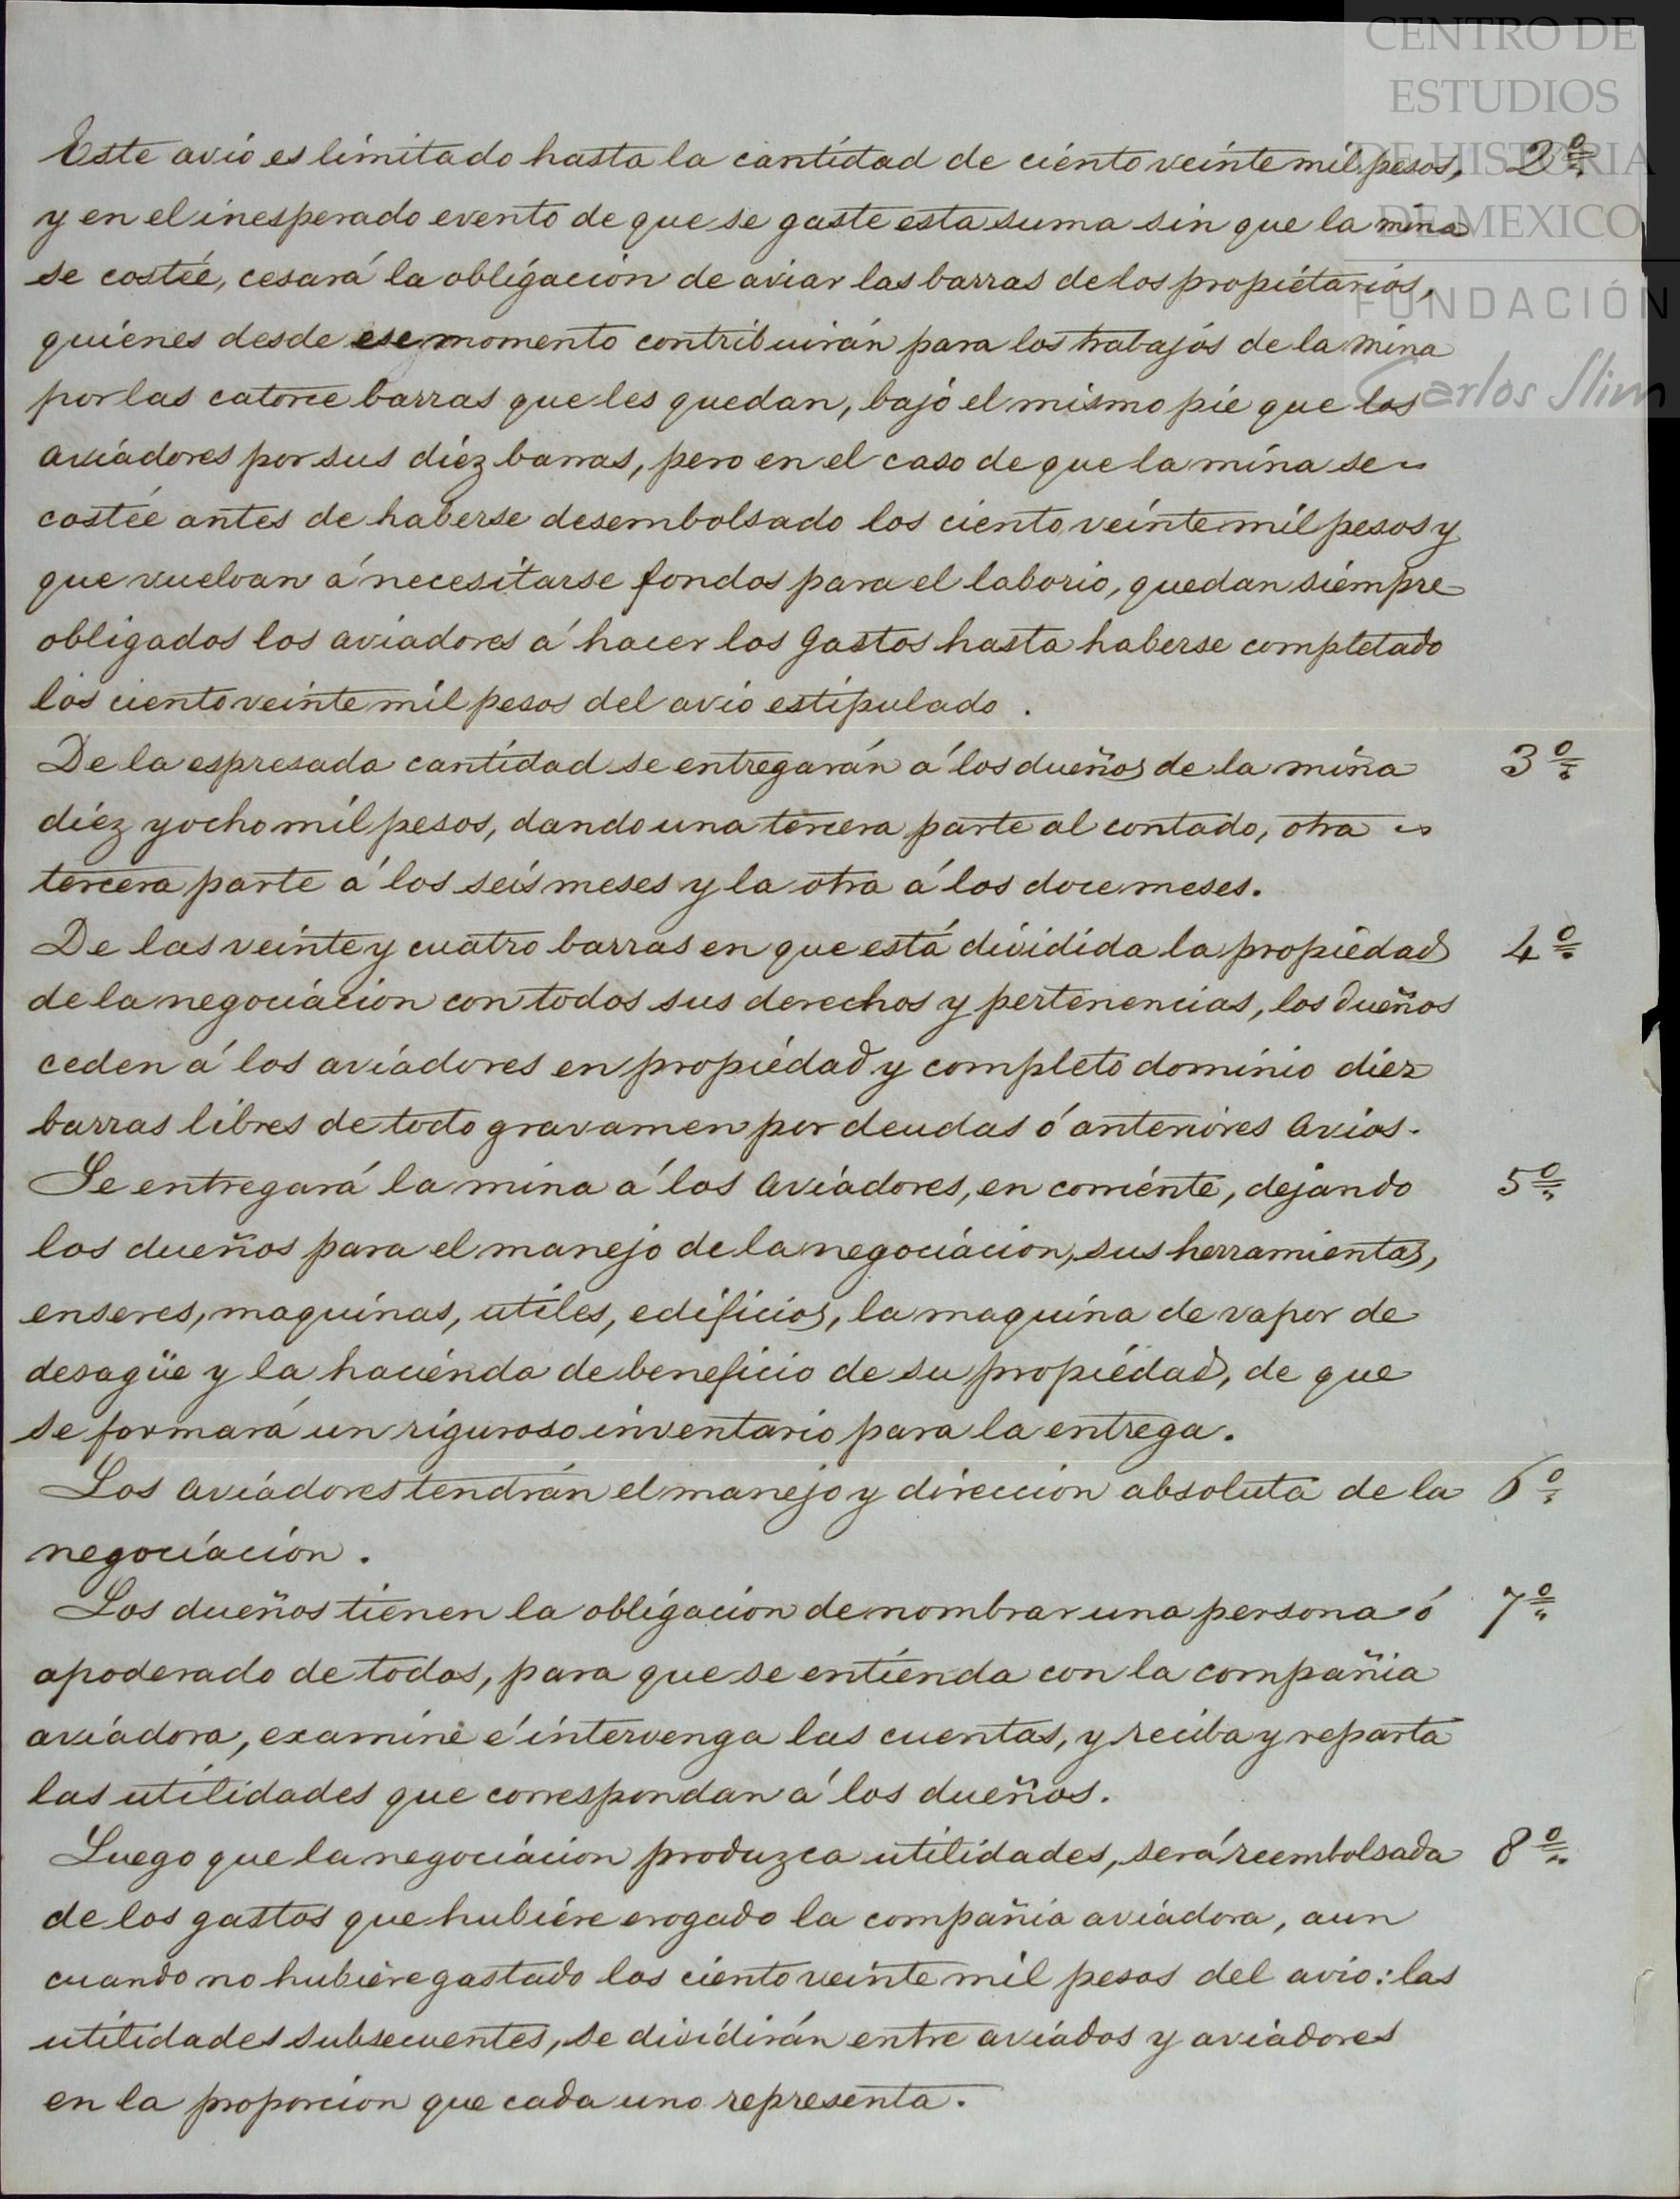 CENTRO DE
ESTUDIOS
DE HISTORIA
DE MEXICO
FUNDACIÓN
Carlos Slim
Este avio es limitado hasta la cantidad de ciento veinte mil pesos, 2º
y en el inesperado evento de que se gaste esta suma sin que la mina
se costée, cesará la obligacion de aviar las barras de los propietarios,
quienes desde ese momento contribuirán para los trabajos de la mina
por las catorce barras que les quedan, bajo el mismo pie que los
aviadores por sus diez barras, pero en el caso de que la mina se
costée antes de haberse desembolsado los ciento veinte mil pesos y
que vuelvan á necesitarse fondos para el laborio, quedan siempre
obligados los aviadores á hacer los gastos hasta haberse completado
los ciento veinte mil pesos del avio estipulado.
De la espresada cantidad se entregarán á los dueños de la mina 3º
diez y ocho mil pesos, dando una tercera parte al contado, otra
tercera parte á los seis meses y la otra á los doce meses.
De las veinte y cuatro barras en que está dividida la propiedad 4º
de la negociacion con todos sus derechos y pertenencias, los dueños
ceden á los aviadores en propiedad y completo dominio diez
barras libres de todo gravamen por deudas ó anteriores avios.
Se entregará la mina á los aviadores, en corriente, dejando 5º
los dueños para el manejo de la negociacion, sus herramientas,
enseres, maquinas, utiles, edificios, la maquina de vapor de
desagüe y la hacienda de beneficio de su propiedad, de que
se formará un riguroso inventario para la entrega.
Los aviadores tendrán el manejo y direccion absoluta de la 6º
negociacion.
Los dueños tienen la obligacion de nombrar una persona ó 7º
apoderado de todos, para que se entienda con la compañia
aviadora, examine é intervenga las cuentas, y reciba y reparta
las utilidades que correspondan á los dueños.
Luego que la negociacion produzca utilidades, será reembolsada 8º
de los gastos que hubiere erogado la compañia aviadora, aun
cuando no hubiere gastado los ciento veinte mil pesos del avio: las
utilidades subsecuentes, se dividirán entre aviados y aviadores
en la proporcion que cada uno representa.